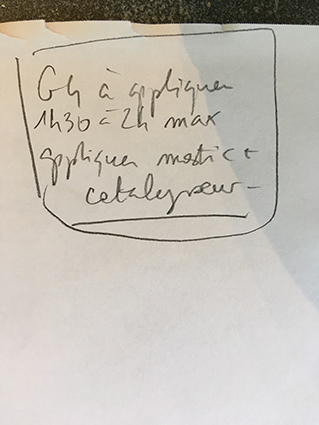 G4 à appliquer
1h30 à 2h max
appliquer mastic +
catalyseur -